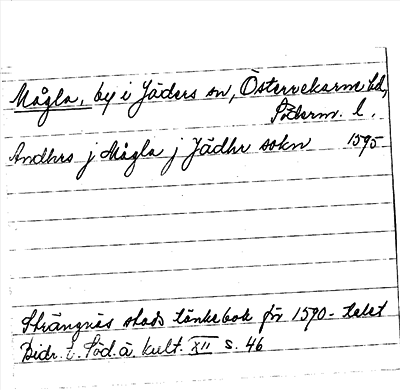 Mågla, by i Jäders sn, Österrekarne hd,
Söderm. l.
Andhrs j Mågla j Jädhr sokn 1595
Strängnäs stads tänkebok för 1590-talet
Bidr. t. Söd. ä. kult. XII s. 46